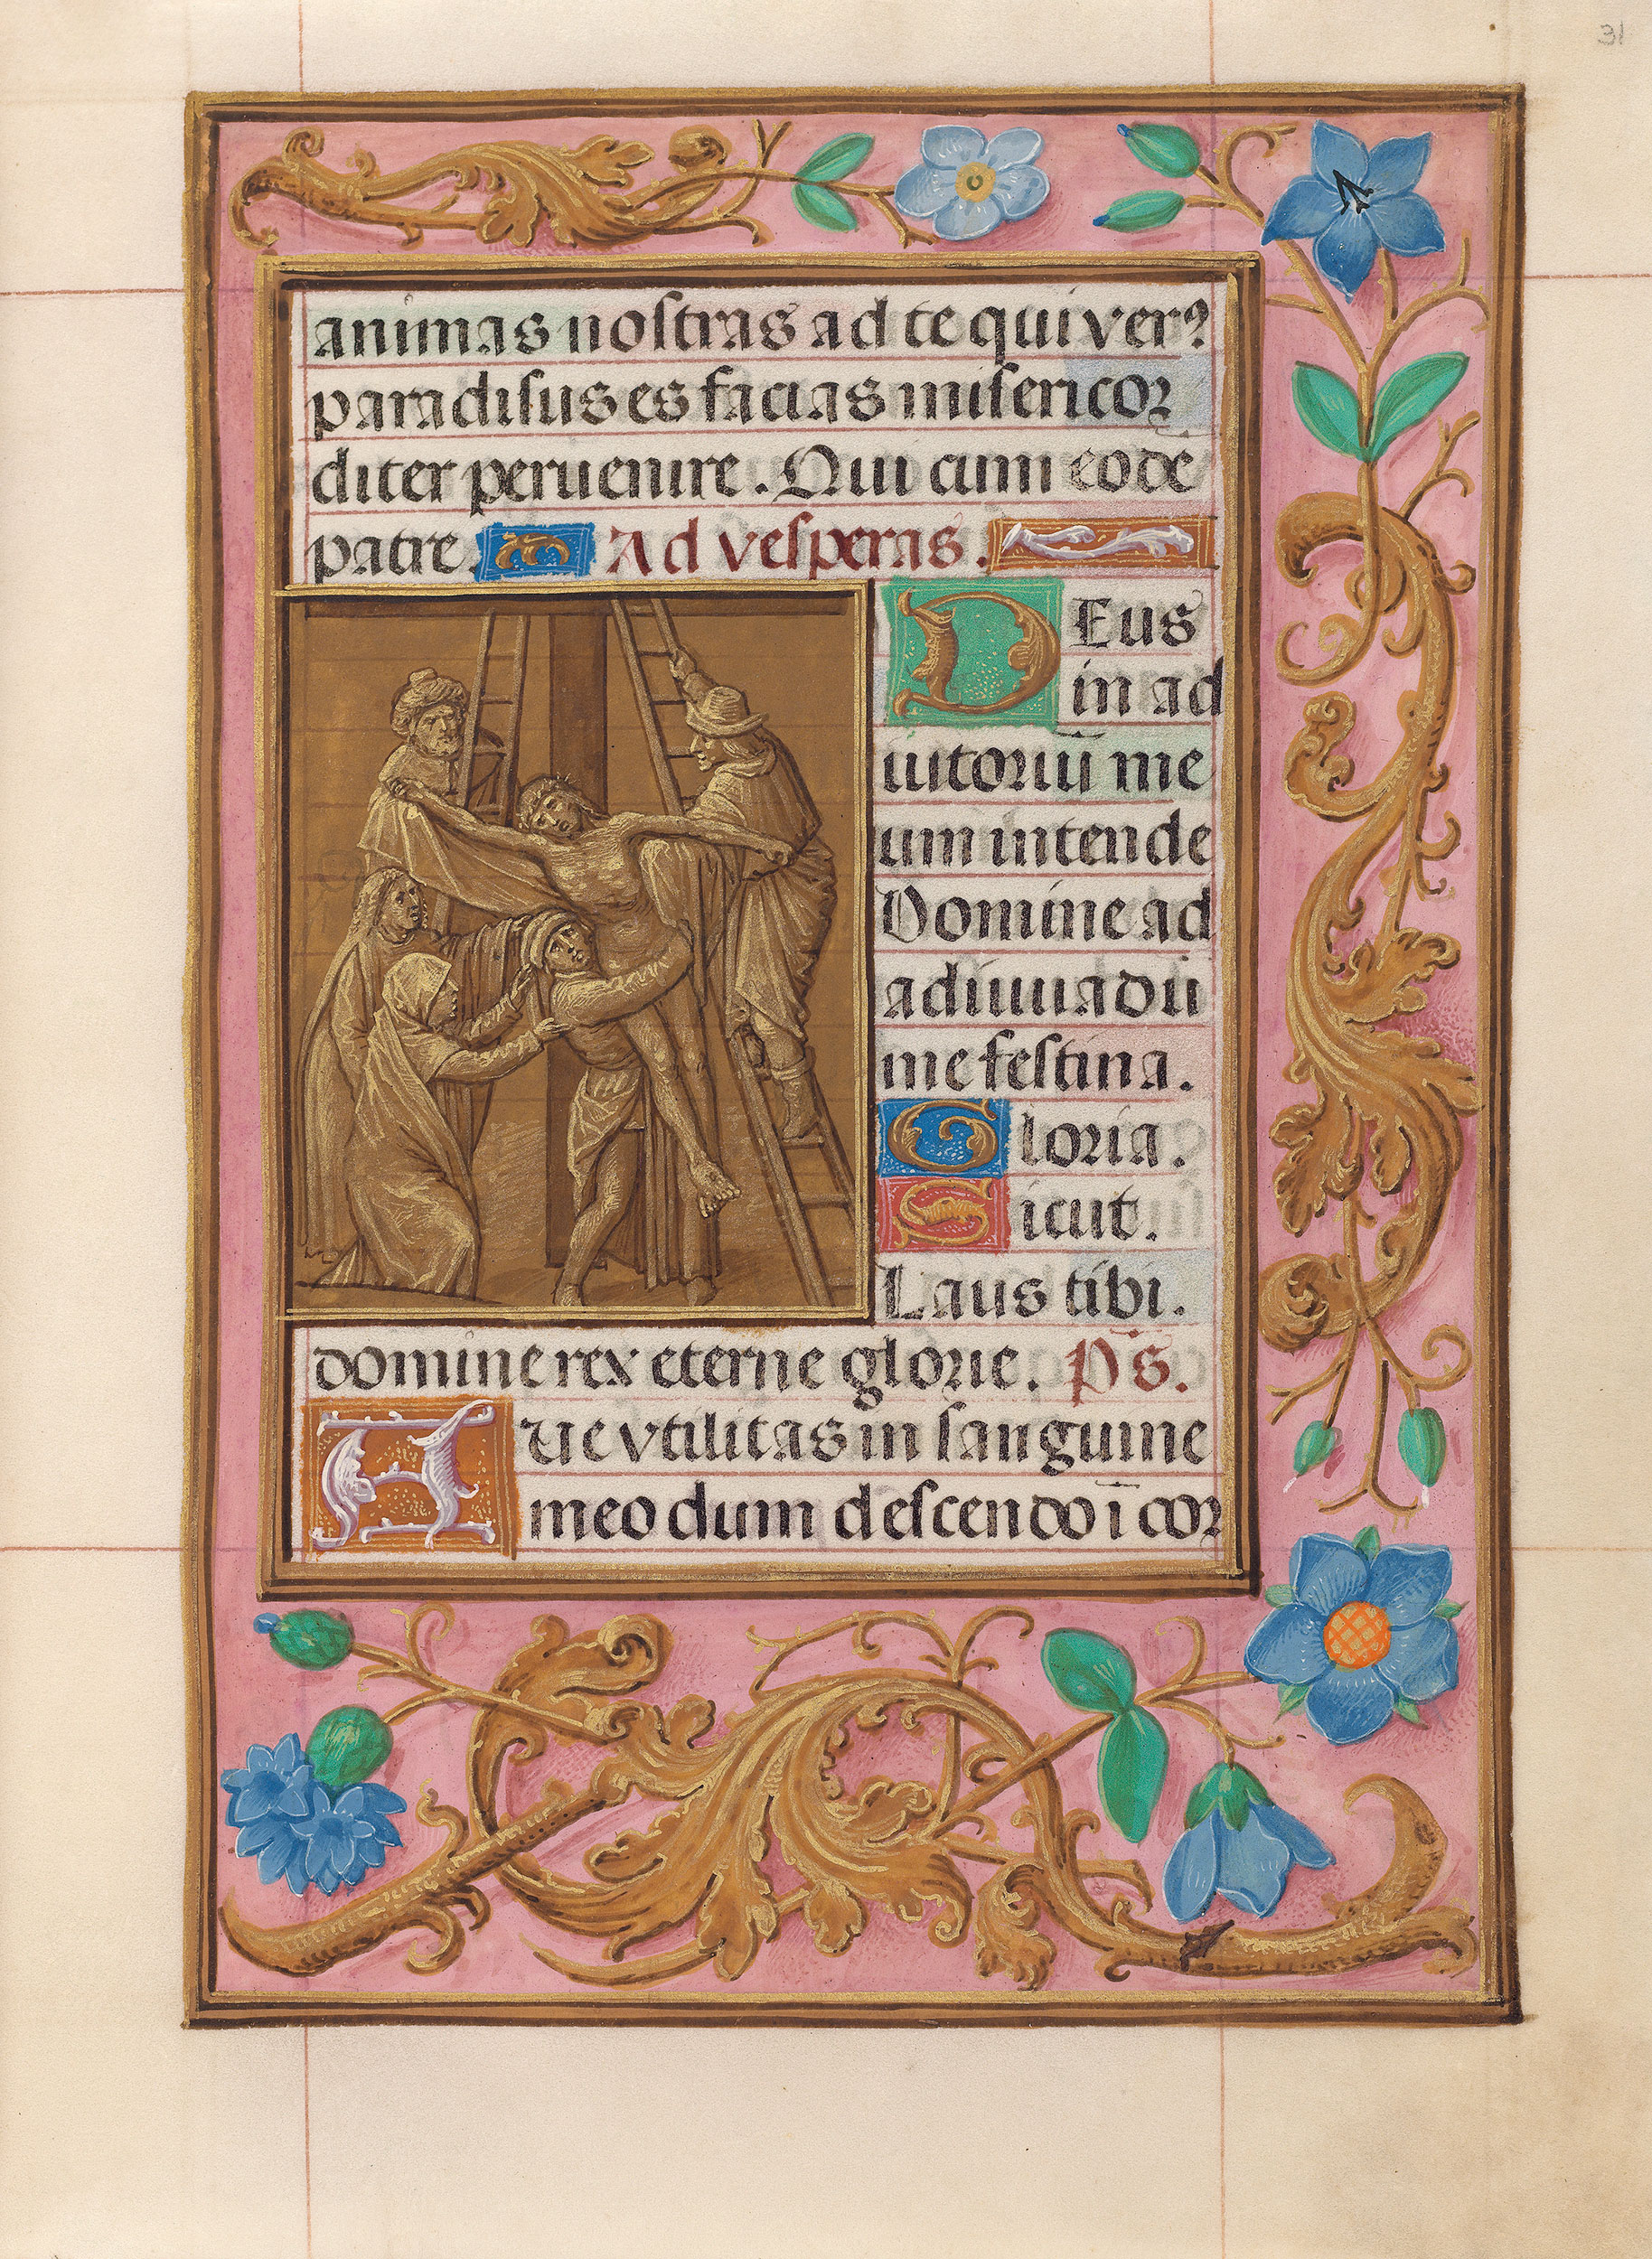 31
animas nostras ad te qui verꝰ
paradisus es facias misericor
diter peruenire. Qui cum eode
patre. Ad vesperas.
Deus
in ad
iutoriū me
um intende
Domine ad
adiuuādū
me festina.
Gloria.
Sicut.
Laus tibi.
domine rex eterne glorie. Ps.
Que vtilitas in sanguine
meo dum descendo ī cor